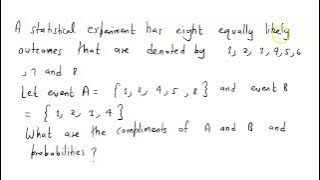 A statistical experiment has eight equally likely
outcomes that are denoted by 1, 2, 3, 4, 5, 6
, 7 and 8
Let event A = { 1, 2, 4, 5, 8 } and event B
= { 1, 2, 3, 4 }
What are the compliments of A and B and
probabilities ?